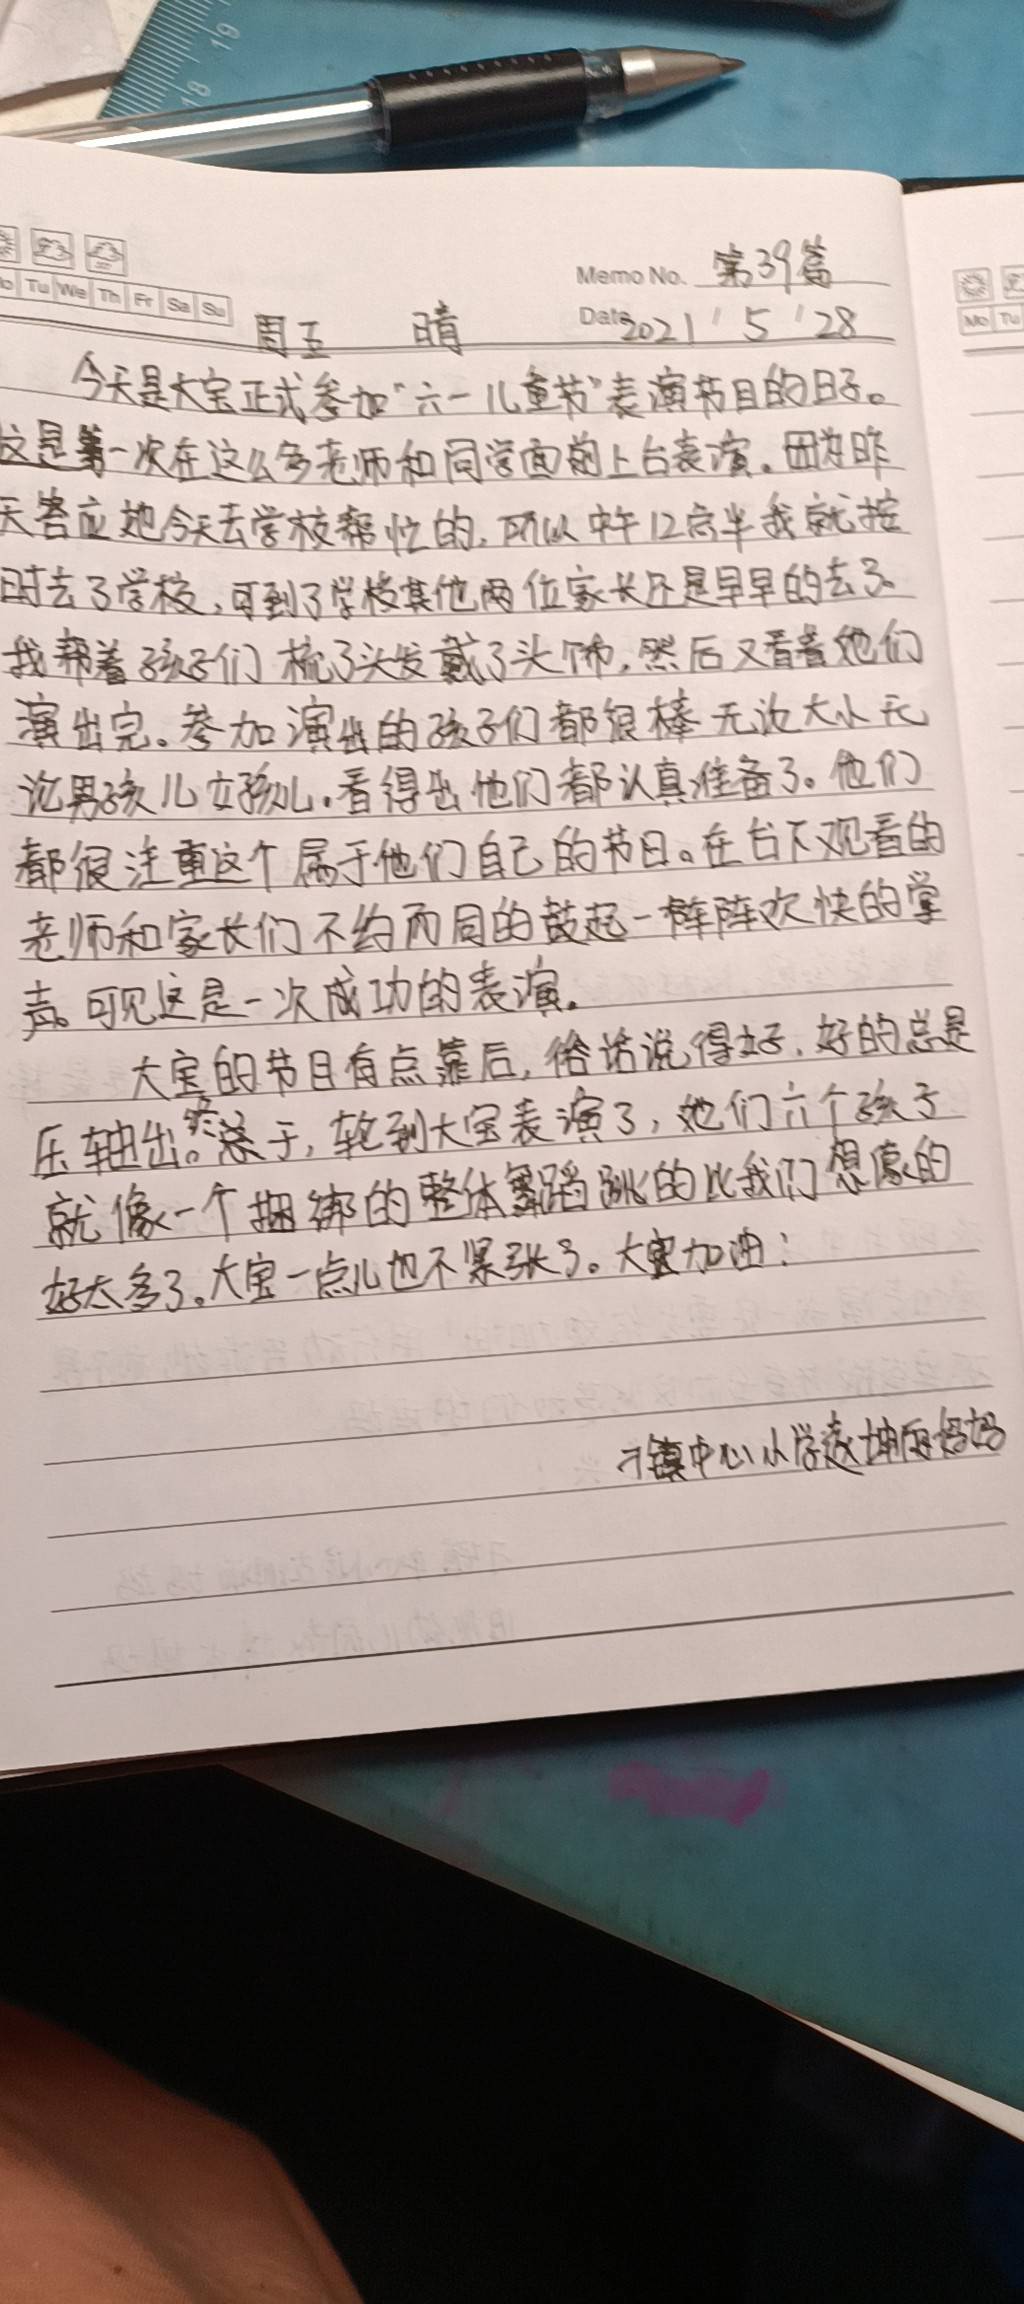 19
18
Tu We Th Fr Sa Su
Memo No. 第39篇
周五 晴 Date 2021 / 5 / 28
Mo Tu
今天是大宝正式参加“六一儿童节”表演节目的日子。
这是第一次在这么多老师和同学面前上台表演。因为昨
天答应她今天去学校帮忙的,所以中午12点半我就按
时去了学校,可到了学校其他两位家长还是早早的去了。
我帮着孩子们梳了头发戴了头饰,然后又看着她们
演出完。参加演出的孩子们都很棒无论大小无
论男孩儿女孩儿。看得出他们都认真准备了。他们
都很注重这个属于他们自己的节日。在台下观看的
老师和家长们不约而同的鼓起一阵阵欢快的掌
声。可见这是一次成功的表演。
大宝的节目有点靠后,俗话说得好,好的总是
压轴出。终于,轮到大宝表演了,她们六个孩子
就像一个捆绑的整体舞蹈跳的比我们想像的
好太多了。大宝一点儿也不紧张了。大宝加油!
镇中心小学 坤 妈妈